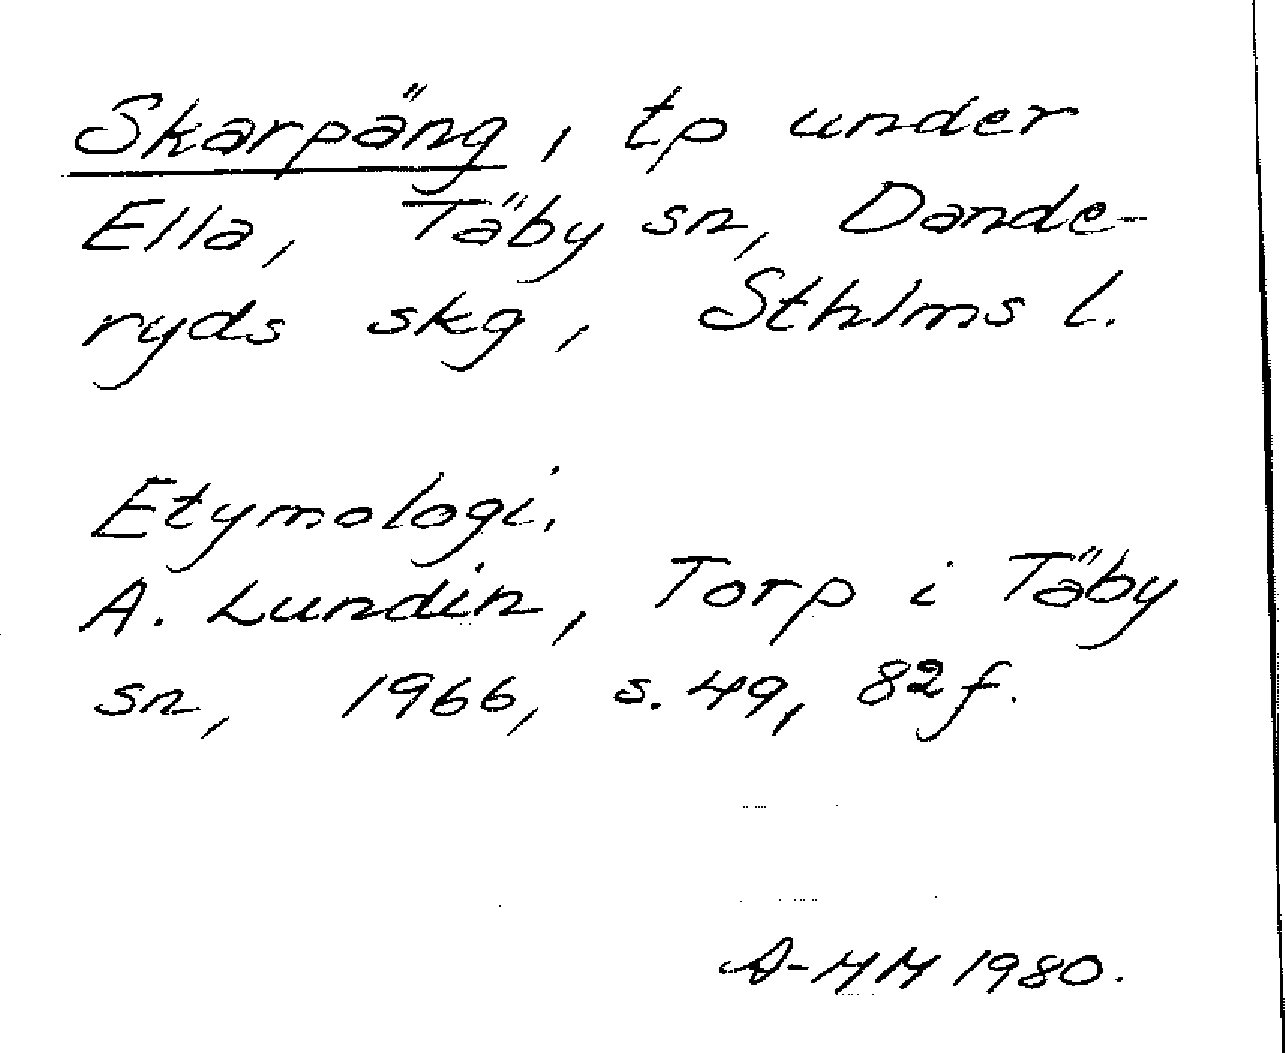 Skarpäng, tp under
Ella, Täby sn, Dande-
ryds skg, Sthlms l.
Etymologi.
A. Lundin, Torp i Täby
sn, 1966, s. 49, 82 f.
A-MM 1980.